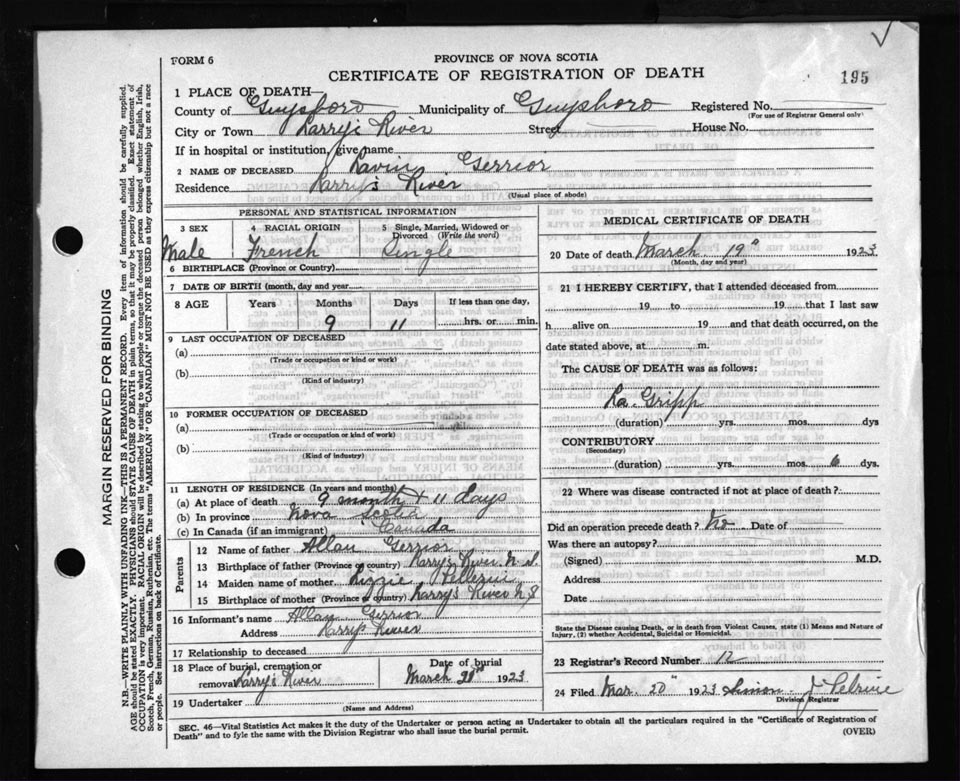 FORM 6
PROVINCE OF NOVA SCOTIA
CERTIFICATE OF REGISTRATION OF DEATH
195
1 PLACE OF DEATH—
County of Guysboro Municipality of Guysboro Registered No.
(For use of Registrar General only)
City or Town Larry's River Street House No.
If in hospital or institution, give name
2 NAME OF DECEASED Lavin Gerrior
Residence Larry's River
(Usual place of abode)
PERSONAL AND STATISTICAL INFORMATION
3 SEX 4 RACIAL ORIGIN 5 Single, Married, Widowed or Divorced (Write the word)
Male French Single
6 BIRTHPLACE (Province or Country)
7 DATE OF BIRTH (month, day and year)
8 AGE Years Months Days If less than one day,
9 11 hrs. or min.
9 LAST OCCUPATION OF DECEASED
(a)
(Trade or occupation or kind of work)
(b)
(Kind of industry)
10 FORMER OCCUPATION OF DECEASED
(a)
(Trade or occupation or kind of work)
(b)
(Kind of industry)
11 LENGTH OF RESIDENCE (In years and months)
(a) At place of death 9 month + 11 days
(b) In province Nova Scotia
(c) In Canada (if an immigrant) Canada
Parents
12 Name of father Allan Gerrior
13 Birthplace of father (Province or country) Larry's River N.S.
14 Maiden name of mother Lizzie
15 Birthplace of mother (Province or country) Larry's River N.S
16 Informant's name Allan Gerrior
Address Larry's River
17 Relationship to deceased
18 Place of burial, cremation or removal Larry's River
Date of burial
March 1923
19 Undertaker
(Name and Address)
MEDICAL CERTIFICATE OF DEATH
20 Date of death March 19th 1923
(Month, day and year)
21 I HEREBY CERTIFY, that I attended deceased from
19 to 19 that I last saw
h alive on 19 and that death occurred, on
date stated above, at m.
The CAUSE OF DEATH was as follows:
La Gripp
(duration) yrs. mos. dys
CONTRIBUTORY
(Secondary)
(duration) yrs. mos. 6 dys.
22 Where was disease contracted if not at place of death?
Did an operation precede death? No Date of
Was there an autopsy?
(Signed) M.D.
Address
Date
State the Disease causing Death, or in death from Violent Causes, state (1) Means and Nature of
Injury, (2) whether Accidental, Suicidal or Homicidal.
23 Registrar's Record Number 12
24 Filed Mar. 20th 1923 Simon J Pelrine
Division Registrar
SEC. 46—Vital Statistics Act makes it the duty of the Undertaker or person acting as Undertaker to obtain all the particulars required in the "Certificate of Registration of
Death" and to fyle the same with the Division Registrar who shall issue the burial permit.
(OVER)
MARGIN RESERVED FOR BINDING
N.B.—WRITE PLAINLY WITH UNFADING INK—THIS IS A PERMANENT RECORD. Every item of information should be carefully supplied.
AGE should be stated EXACTLY. PHYSICIANS should STATE CAUSE OF DEATH in plain terms, so that it may be properly classified. Exact statement of
OCCUPATION is very important. RACIAL ORIGIN will be described by stating to what people or tongue the deceased person belonged, whether English, Irish,
Scotch, French, German, Russian, Ruthenian, etc. The terms "AMERICAN" OR "CANADIAN" MUST NOT BE USED as they express citizenship but not a race
or people. See instructions on back of Certificate.